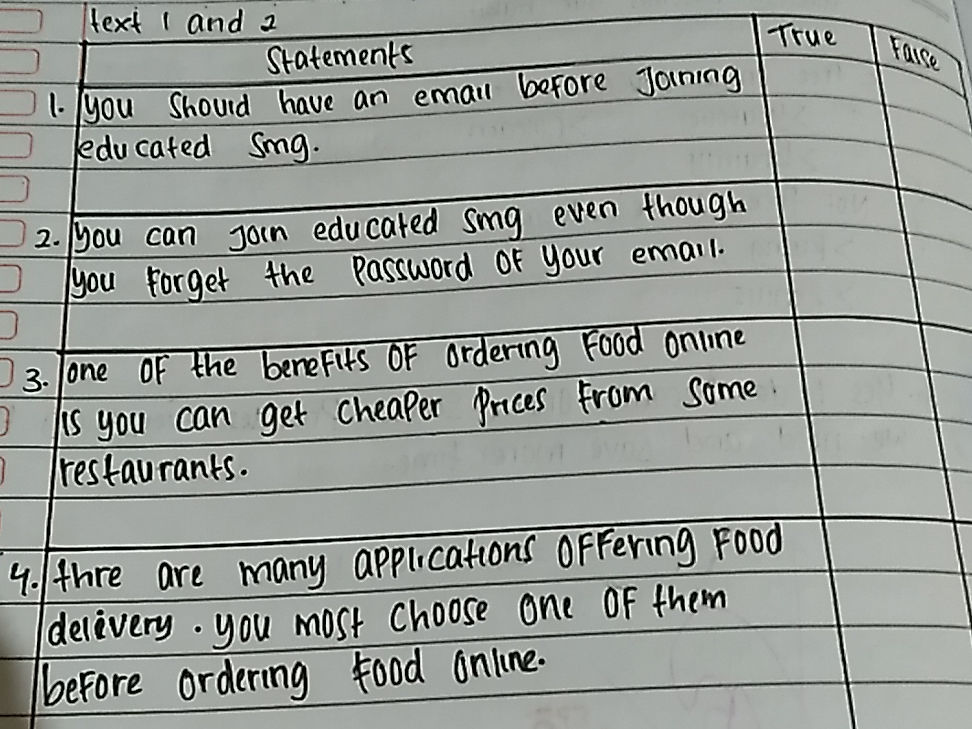 text 1 and 2
Statements True False
1. you should have an email before joining
educated smg.
2. you can join educated smg even though
you forget the password of your email.
3. one of the benefits of ordering food online
is you can get cheaper prices from some
restaurants.
4. thre are many applications offering food
delivery. you most choose one of them
before ordering food online.